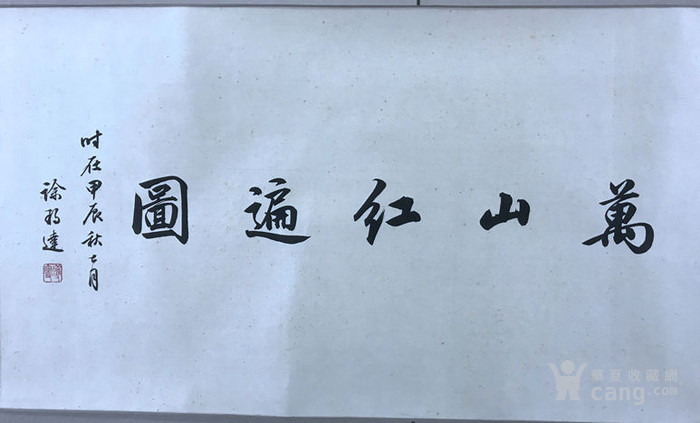 萬山红遍圖
时在甲辰秋七月
徐邦達
華夏收藏網
cang.com